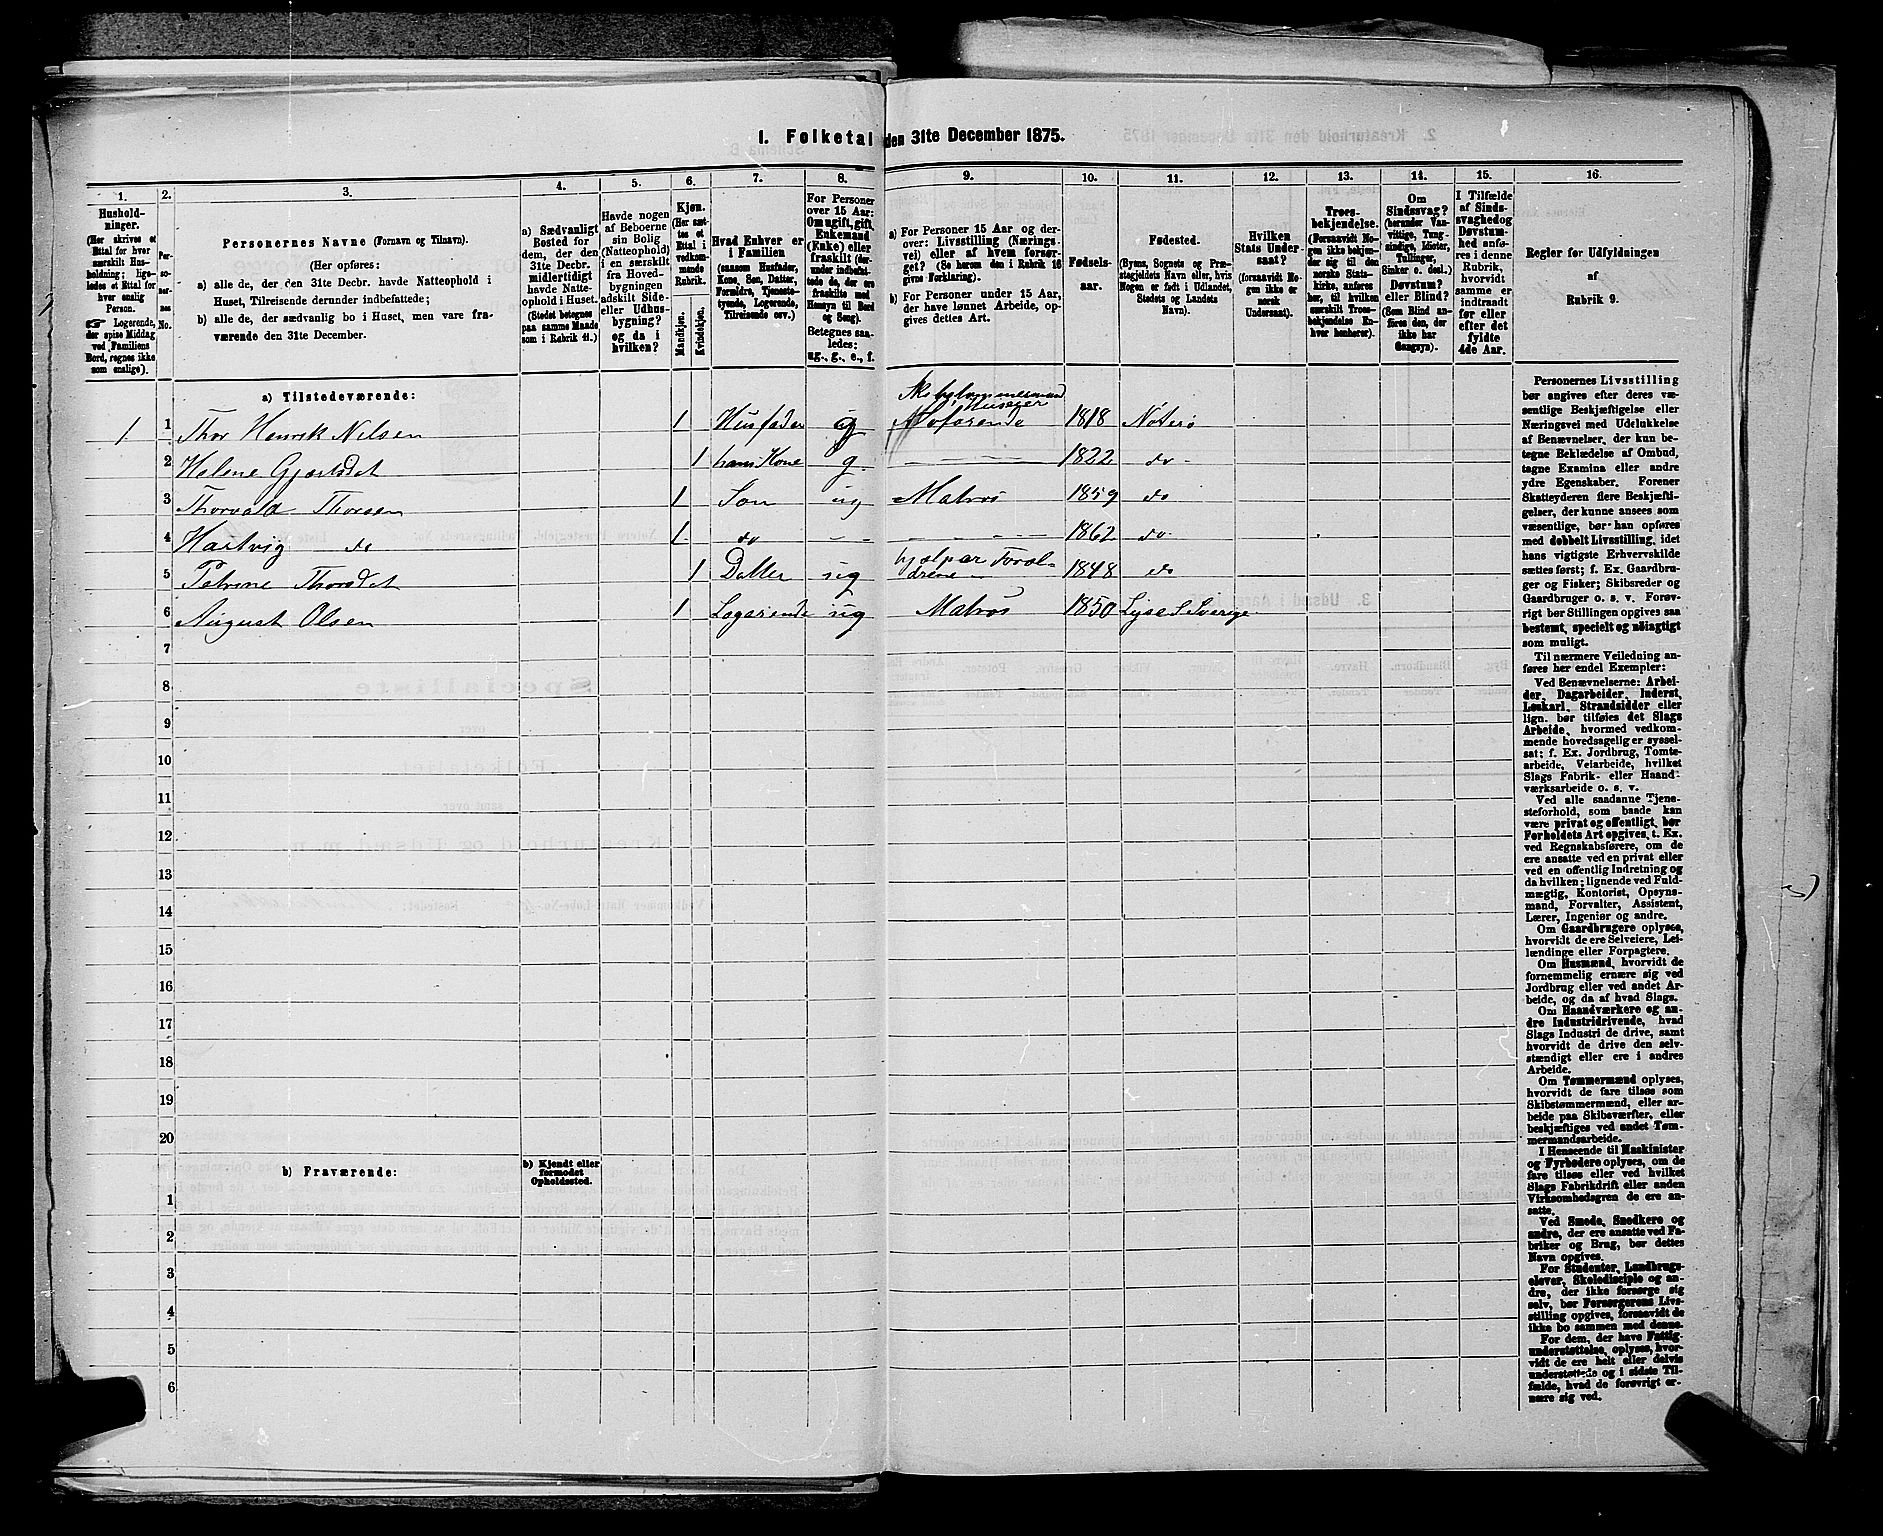 1. Folketal den 31te December 1875.
1. 2. 3. 4. 5. 6. 7. 8. 9. 10. 11. 12. 13. 14. 15. 16.
Hushold-
ninger.
(Her skrives et
Ettal for hver
særskilt Hus-
holdning; lige-
ledes et Ettal for
hver enslig
Person.
☞ Logerende,
der spise Middag
ved Familiens
Bord, regnes ikke
som enslige).
Per-
so-
ner-
nes
No.
Personernes Navne (Fornavn og Tilnavn).
(Her opføres:
a) alle de, der den 31te Decbr. havde Natteophold i
Huset, Tilreisende derunder indbefattede;
b) alle de, der sædvanlig bo i Huset, men vare fra-
værende den 31te December.
a) Sædvanligt
Bosted for
dem, der den
31te Decbr.
midlertidigt
havde Natte-
ophold i Huset.
(Stedet betegnes
paa samme Maade
som i Rubrik 11.)
Havde nogen
af Beboerne
sin Bolig
(Natteophold)
i en særskilt
fra Hoved-
bygningen
adskilt Side-
eller Udhus-
bygning?
og da i
hvilken?
Kjøn.
(Her sæt-
tes et
Ettal i
vedkom-
mende
Rubrik.
Mandkjøn.
Kvindekjøn.
Hvad Enhver er
i Familien
(saasom Husfader,
Kone, Søn, Datter,
Forældre, Tjeneste-
tyende, Logerende,
Tilreisende osv.)
For Personer
over 15 Aar:
Om ugift, gift,
Enkemand
(Enke) eller
fraskilt (der-
under indbefat-
tede de, der ere
fraskilte med
Hensyn til Bord
og Seng).
Betegnes saa-
ledes:
ug., g., e., f.
a) For Personer 15 Aar og der-
over: Livsstilling (Nærings-
vei) eller af hvem forsør-
get? (Se herom den i Rubrik 16
givne Forklaring).
b) For Personer under 15 Aar,
der have lønnet Arbeide, op-
gives dettes Art.
Fødsels-
aar.
Fødested.
(Byens, Sognets og Præ-
stegjeldets Navn eller, hvis
Nogen er født i Udlandet,
Stedets og Landets
Navn).
Hvilken
Stats Under-
saat?
(forsaavidt No-
gen ikke er
norsk
Undersaat).
Troes-
bekjendelse.
(Forsaavidt No-
gen ikke bekjen-
der sig til den
norske Stats-
kirke, anføres
her, til hvilken
særskilt Troes-
bekjendelse En-
hver henhører).
Om
Sindssvag?
(herunder Van-
vittige, Tung-
sindige, Idioter,
Tullinger,
Sinker o. desl.)
Døvstum?
eller Blind?
(Som Blind an-
føres den, der
ikke har
Gangsyn).
I Tilfælde
af Sinds-
svaghed og
Døvstum-
hed anfø-
res i denne
Rubrik,
hvorvidt
samme er
indtraadt
før eller
efter det
fyldte
4de Aar.
Regler for Udfyldningen
af
Rubrik 9.
a) Tilstedeværende:
Skibstømmermand
Huseier
1 1 Thor Henrik Nilsen 1 Husfader g 1818 Nøterø
2 Helene Gjertsdet 1 hans Kone g 1822 do
3 Thorvald Thorsen 1 Søn ug Matros 1859 do
4 Hartvig do 1 do 1862 do
5 Petrine Thorsdet 1 Datter ug hjælper Foræl-
drene 1848 do
6 August Olsen 1 Logerende ug Matros 1850 Lysekil Sverige
7
8
9
10
11
12
13
14
15
16
17
18
19
20
b) Fraværende:
b) Kjendt eller
formodet
Opholdssted.
1
2
3
4
5
6
Personernes Livsstilling
bør angives efter deres væ-
sentlige Beskjæftigelse eller
Næringsvei med Udelukkelse
af Benævnelser, der kun be-
tegne Beklædelse af Ombud,
tagne Examina eller andre
ydre Egenskaber. Forener
Skatteyderen flere Beskjæfti-
gelser, der kunne ansees som
væsentlige, bør han opføres
med dobbelt Livsstilling, idet
hans vigtigste Erhvervskilde
sættes først; f. Ex. Gaardbru-
ger og Fisker; Skibsreder og
Gaardbruger o. s. v. Forøv-
rigt bør Stillingen opgives saa
bestemt, specielt og nøiagtigt
som muligt.
Til nærmere Veiledning an-
føres her endel Exempler:
Ved Benævnelserne: Arbei-
der, Dagarbeider, Inderst,
Løskarl, Strandsidder eller
lign. bør tilføies det Slags
Arbeide, hvormed vedkom-
mende hovedsagelig er syssel-
sat; f. Ex. Jordbrug, Tomte-
arbeide, Veiarbeide, hvilket
Slags Fabrik- eller Haand-
værksarbeide o. s. v.
Ved alle saadanne Tjene-
steforhold, som baade kan
være privat og offentligt, bør
Forholdets Art opgives, t. Ex.
ved Regnskabsførere, om de
ere ansatte ved en privat eller
ved en offentlig Indretning og
da hvilken; lignende ved Fuld-
mægtig, Kontorist, Opsyns-
mand, Forvalter, Assistent,
Lærer, Ingeniør og andre.
Om Gaardbrugere oplyses,
hvorvidt de ere Selveiere, Lei-
lændinge eller Forpagtere.
Om Husmænd, hvorvidt de
fornemmelig ernære sig ved
Jordbrug eller ved andet Ar-
beide, og da af hvad Slags.
Om Haandværkere og an-
dre Industridrivende, hvad
Slags Industri de drive, samt
hvorvidt de drive den selv-
stændigt eller ere i andres
Arbeide.
Om Tømmermænd oplyses,
hvorvidt de fare tilsøs som
Skibstømmermænd, eller ar-
beide paa Skibsværfter, eller
beskjæftiges ved andet Tøm-
mermandsarbeide.
I Henseende til Maskinister
og Fyrbødere oplyses, om de
fare tilsøs eller ved hvilket
Slags Fabrikdrift eller anden
Virksomhedsgren de ere an-
satte.
Ved Smede, Snedkere og
andre, der ere ansatte ved Fa-
briker og Brug, bør dettes
Navn opgives.
For Studenter, Landbrugs-
elever, Skoledisciple og an-
dre, der ikke forsørge sig
selv, bør Forsørgerens Livs-
stilling opgives, forsaavidt de
ikke bo sammen med denne.
For dem, der have Fattig-
understøttelse, oplyses, hvor-
vidt de ere helt eller delvis
understøttede og i sidste Til-
fælde, hvad de forøvrigt er-
nære sig ved.